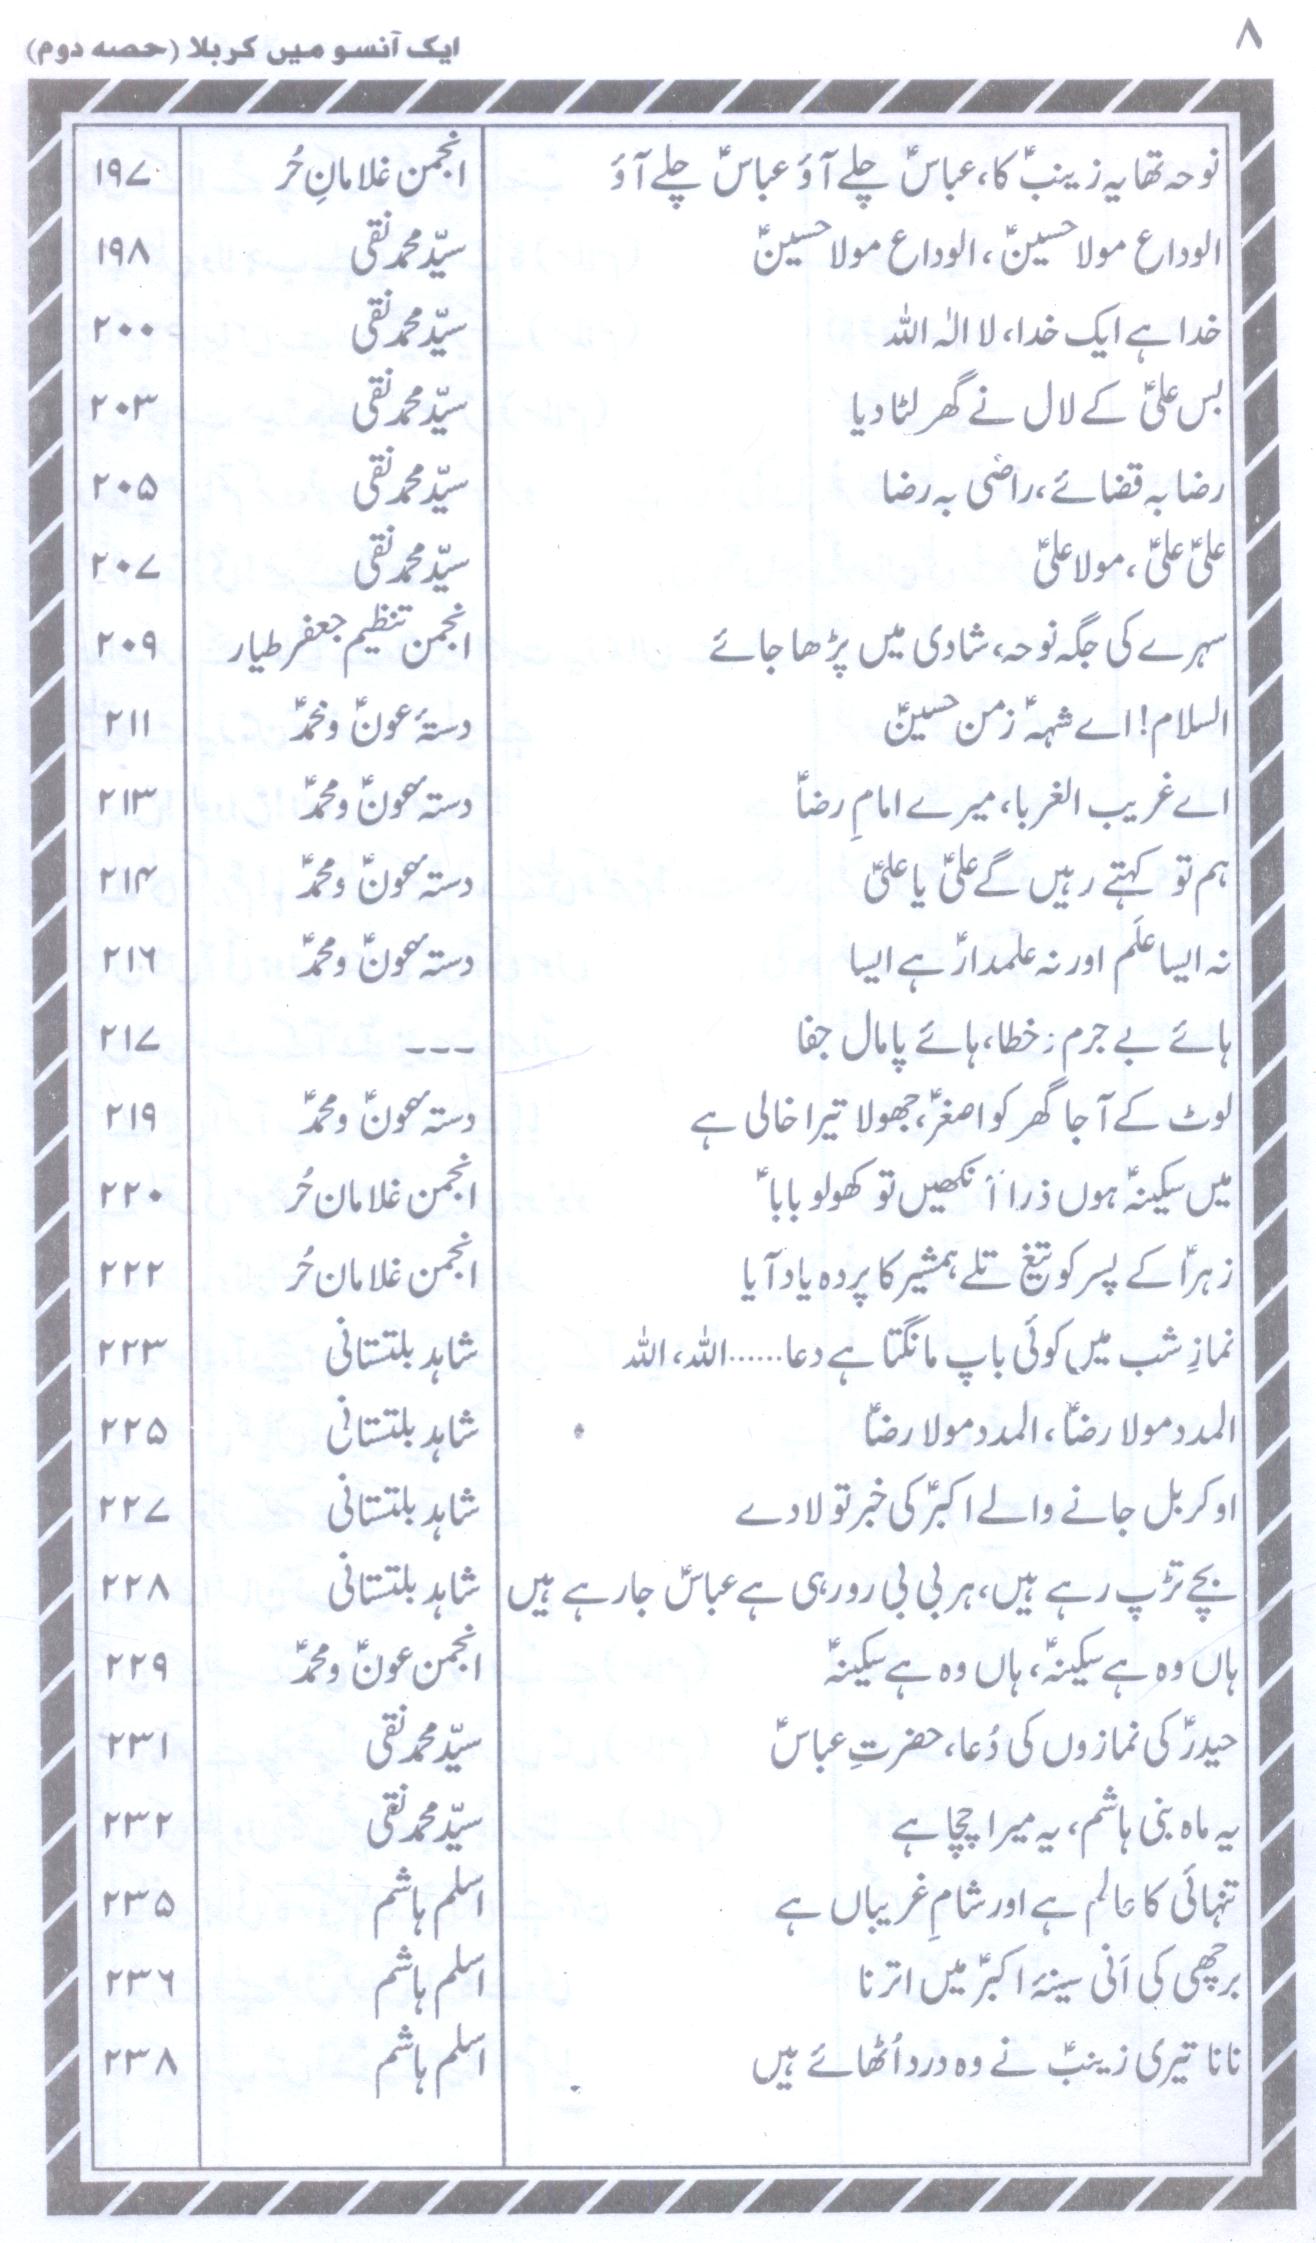 ۸
ایک آنسو میں کربلا (حصہ دوم)
نوحہ تھا یہ زینبؑ کا، عباسؑ چلے آؤ عباسؑ چلے آؤ انجمن غلامانِ حُر ۱۹۷
الوداع مولا حسینؑ، الوداع مولا حسینؑ سیّد محمد نقی ۱۹۸
خدا ہے ایک خدا، لا الہٰ اللہ سیّد محمد نقی ۲۰۰
بس علیؑ کے لال نے گھر لٹا دیا سیّد محمد نقی ۲۰۳
رضا بہ قضائے، راضی بہ رضا سیّد محمد نقی ۲۰۵
علیؑ علیؑ، مولا علیؑ سیّد محمد نقی ۲۰۷
سہرے کی جگہ نوحہ، شادی میں پڑھا جائے انجمن تنظیم جعفر طیار ۲۰۹
السلام! اے شہہؑ زمن حسینؑ دستۂ عونؑ و محمدؑ ۲۱۱
اے غریب الغربا، میرے امامِ رضاؑ دستہ عونؑ و محمدؑ ۲۱۳
ہم تو کہتے رہیں گے علیؑ یا علیؑ دستہ عونؑ و محمدؑ ۲۱۴
نہ ایسا علَم اور نہ علمدارؑ ہے ایسا دستہ عونؑ و محمدؑ ۲۱۶
ہائے بے جرم زخطا، ہائے پامال جفا --- ۲۱۷
لوٹ کے آ جا گھر کو اصغرؑ، جھولا تیرا خالی ہے دستہ عونؑ و محمدؑ ۲۱۹
میں سکینہؑ ہوں ذرا آنکھیں تو کھولو باباؑ انجمن غلامان حُر ۲۲۰
زہراؑ کے پسر کو تیغ تلے ہمشیر کا پردہ یاد آیا انجمن غلامان حُر ۲۲۲
نمازِ شب میں کوئی باپ مانگتا ہے دعا......اللہ، اللہ شاہد بلتستانی ۲۲۳
المدد مولا رضاؑ، المدد مولا رضاؑ شاہد بلتستانی ۲۲۵
او کربل جانے والے اکبرؑ کی خبر تو لا دے شاہد بلتستانی ۲۲۷
بچے تڑپ رہے ہیں، ہر بی بی رو رہی ہے عباسؑ جا رہے ہیں شاہد بلتستانی ۲۲۸
ہاں وہ ہے سکینہؑ، ہاں وہ ہے سکینہؑ انجمن عونؑ و محمدؑ ۲۲۹
حیدرؑ کی نمازوں کی دُعا، حضرتِ عباسؑ سیّد محمد نقی ۲۳۱
یہ ماہ بنی ہاشم، یہ میرا چچا ہے سیّد محمد نقی ۲۳۲
تنہائی کا عالم ہے اور شامِ غریباں ہے اسلم ہاشم ۲۳۵
برچھی کی اَنی سینۂ اکبرؑ میں اترنا اسلم ہاشم ۲۳۶
نانا تیری زینبؑ نے وہ درد اُٹھائے ہیں اسلم ہاشم ۲۳۸